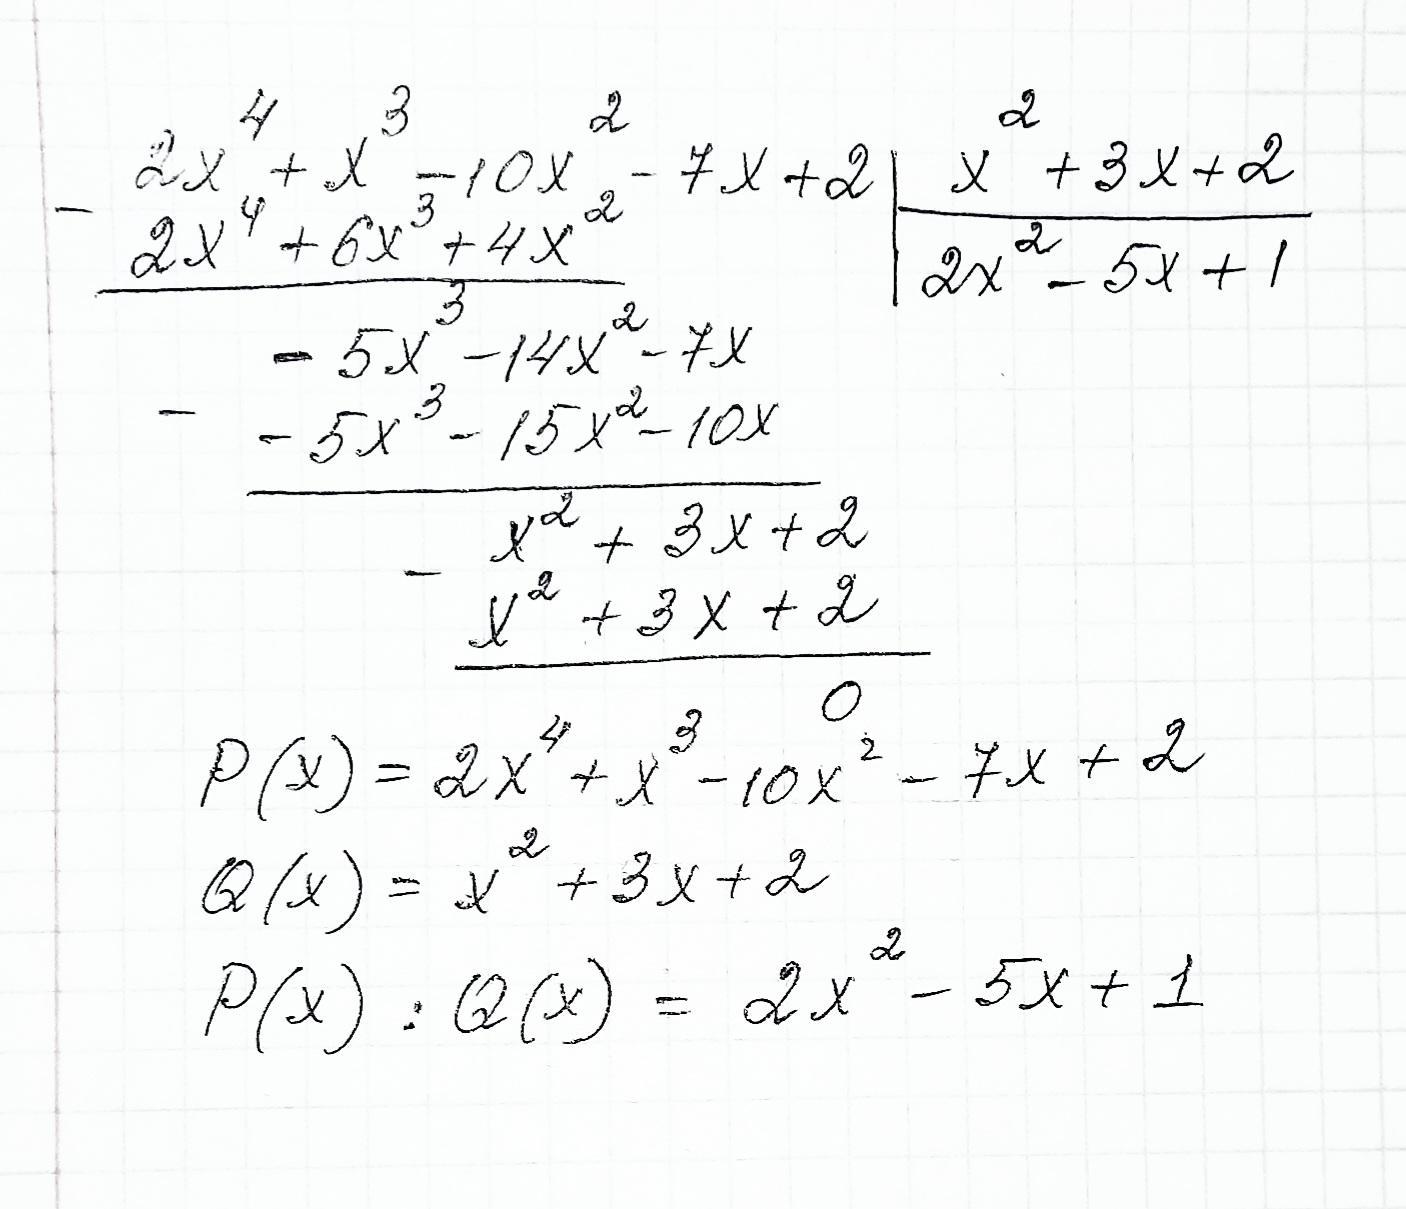 2x⁴ + x³ - 10x² - 7x + 2 | x² + 3x + 2
- 2x⁴ + 6x³ + 4x² | 2x² - 5x + 1
- 5x³ - 14x² - 7x
- - 5x³ - 15x² - 10x
- x² + 3x + 2
x² + 3x + 2
0
P(x) = 2x⁴ + x³ - 10x² - 7x + 2
Q(x) = x² + 3x + 2
P(x) : Q(x) = 2x² - 5x + 1